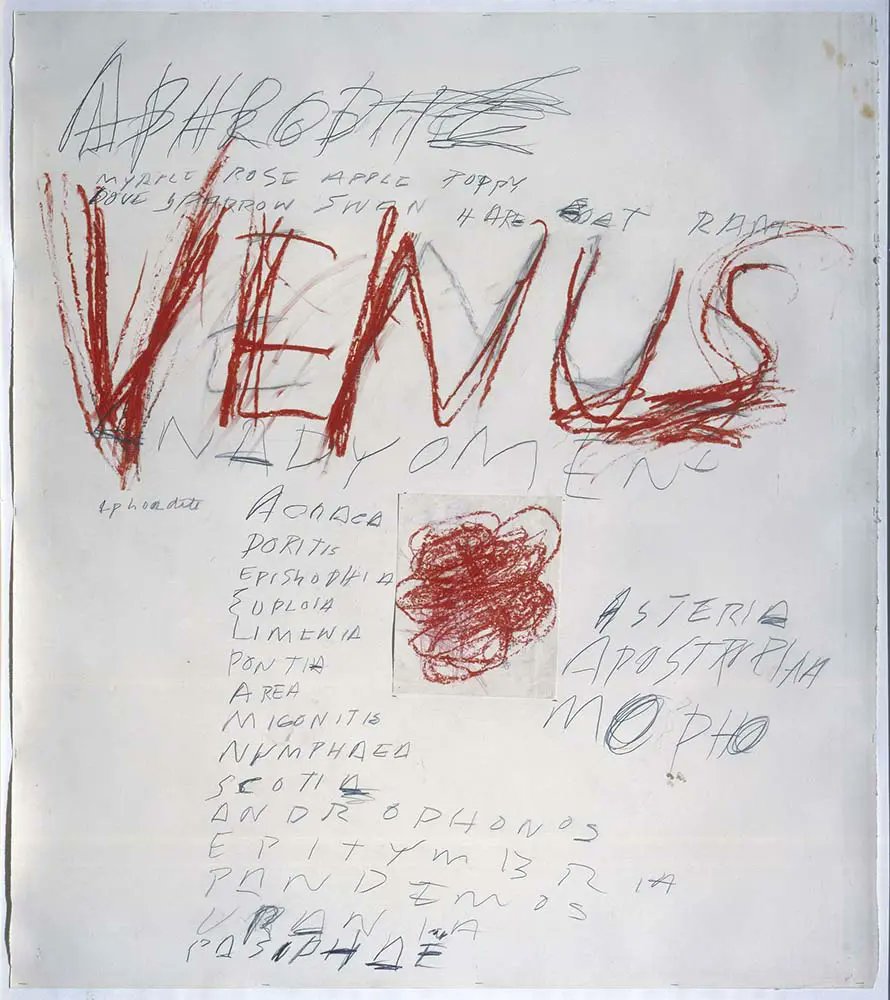 APHRODITE
MYRTLE ROSE APPLE POPPY
DOVE SPARROW SWAN HARE GOAT RAM
VENUS
ANADYOMENE
Aphrodite
ACRAEA
DORITIS
EPISKOPHIA
EUPLOIA
LIMENIA
PONTIA
AREA
MIGONITIS
NUMPHAEA
SCOTIA
ANDROPHONOS
EPITYMBRIA
PANDEMOS
URANIA
PASIPHAE
ASTERIA
APOSTROPHIA
MORPHO